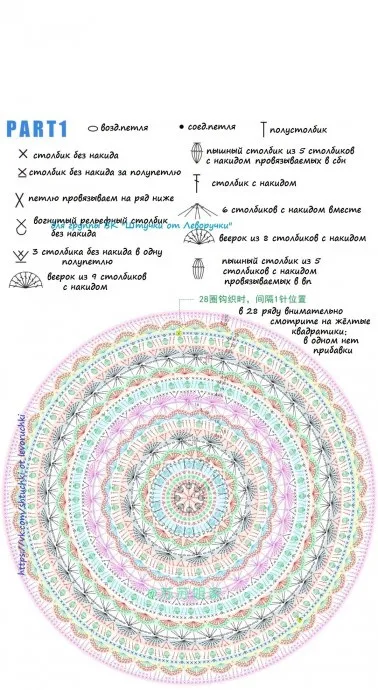 PART1
возд.петля
соед.петля
полустолбик
столбик без накида
пышный столбик из 5 столбиков
с накидом провязываемых в сбн
столбик без накида за полупетлю
столбик с накидом
петлю провязываем на ряд ниже
6 столбиков с накидом вместе
вогнутый рельефный столбик
без накида
для группы ВК "Штучки от Леворучки"
веерок из 8 столбиков
с накидом
3 столбика без накида в одну
полупетлю
пышный столбик из 5
столбиков с накидом
провязываемых в вп
веерок из 9 столбиков
с накидом
28圈钩织时，间隔1针位置
в 28 ряду внимательно
смотрите на жёлтые
квадратики:
в одном нет
прибавки
https://vk.com/shtuchki_ot_levoruchki